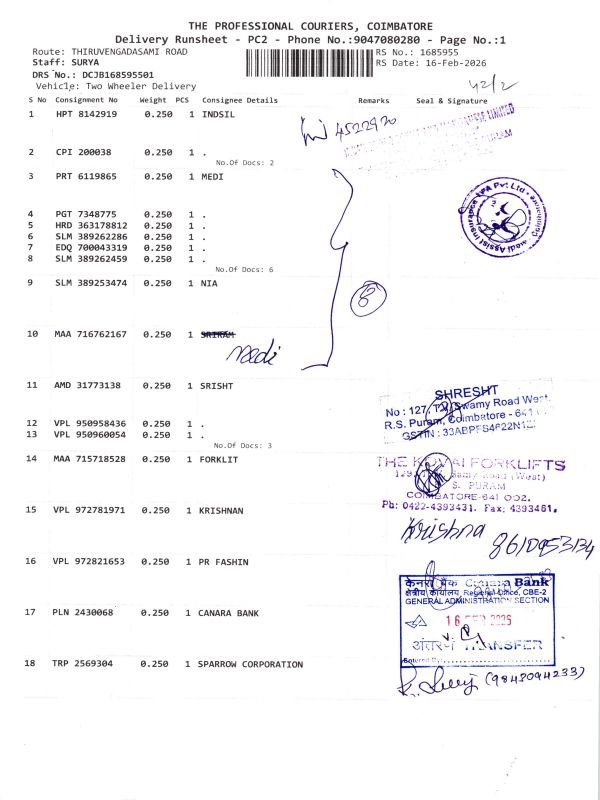 THE PROFESSIONAL COURIERS, COIMBATORE
Delivery Runsheet - PC2 - Phone No.:9047080280 - Page No.:1
Route: THIRUVENGADASAMI ROAD RS No.: 1685955
Staff: SURYA RS Date: 16-Feb-2026
DRS No.: DCJB168595501
Vehicle: Two Wheeler Delivery 42/2
S No Consignment No Weight PCS Consignee Details Remarks Seal & Signature
1 HPT 8142919 0.250 1 INDSIL 4522920
LIMITED
2 CPI 200038 0.250 1 .
No.Of Docs: 2
3 PRT 6119865 0.250 1 MEDI
Medi Assist Insurance TPA Pvt Ltd
4 PGT 7348775 0.250 1 .
5 HRD 363178812 0.250 1 .
6 SLM 389262286 0.250 1 .
7 EDQ 700043319 0.250 1 .
8 SLM 389262459 0.250 1 .
No.Of Docs: 6
9 SLM 389253474 0.250 1 NIA
8
10 MAA 716762167 0.250 1 SRIRAM
medi
11 AMD 31773138 0.250 1 SRISHT
SHRESHT
No : 127, T.V. Swamy Road West,
R.S. Puram, Coimbatore - 641
GSTIN : 33ABPFS4622N1Z
12 VPL 950958436 0.250 1 .
13 VPL 950960054 0.250 1 .
No.Of Docs: 3
14 MAA 715718528 0.250 1 FORKLIT
THE KOVAI FORKLIFTS
Samy Road (West)
S. PURAM
COIMBATORE-641 002.
Ph: 0422-4393431. Fax: 4393461.
15 VPL 972781971 0.250 1 KRISHNAN
Krishna 8610953134
16 VPL 972821653 0.250 1 PR FASHIN
केनरा बैंक Canara Bank
क्षेत्रीय कार्यालय Regional Office, CBE-2
GENERAL ADMINISTRATION SECTION
17 PLN 2430068 0.250 1 CANARA BANK
16 FEB 2026
अंतरण TRANSFER
Entered By
18 TRP 2569304 0.250 1 SPARROW CORPORATION
(9843094233)